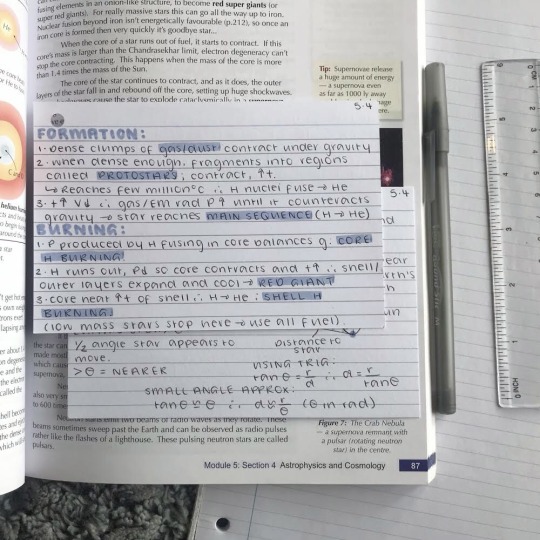 fusing elements in an onion-like structure, to become red super giants (or
super red giants). For really massive stars this can go all the way up to iron.
Nuclear fusion beyond iron isn't energetically favourable (p.212), so once an
iron core is formed then very quickly it's goodbye star...
When the core of a star runs out of fuel, it starts to contract. If this
core's mass is larger than the Chandrasekhar limit, electron degeneracy can't
stop the core contracting. This happens when the mass of the core is more
than 1.4 times the mass of the Sun.
The core of the star continues to contract, and as it does, the outer
layers of the star fall in and rebound off the core, setting up huge shockwaves.
cause the star to explode cataclysmically in a
Tip: Supernovae release
a huge amount of energy
— a supernova even
as far as 1000 ly away
5.4
FORMATION:
1. Dense clumps of gas/dust contract under gravity
2. when dense enough, fragments into regions
called PROTOSTARS, contract, ↑t.
↳ Reaches few million°C ∴ H nuclei fuse → He
3. t↑ V↓ ∴ gas/em rad P ↑ until it counteracts
gravity → star reaches MAIN SEQUENCE (H → He)
BURNING:
1. P produced by H fusing in core balances g. CORE
H BURNING
2. H runs out, P↓ so core contracts and t↑ ∴ shell/
outer layers expand and cool → RED GIANT
3. core heat ↑t of shell ∴ H → He ∴ SHELL H
BURNING.
(low mass stars stop here → use all fuel).
5.4
½ angle star appears to
move.
> θ = NEARER
distance to
star
USING TRIG:
tanθ = r/d ∴ d = r/tanθ
SMALL ANGLE APPROX:
tanθ ≈ θ ∴ d ≈ r/θ (θ in rad)
two beams of radio waves as they rotate. These
beams sometimes sweep past the Earth and can be observed as radio pulses
rather like the flashes of a lighthouse. These pulsing neutron stars are called
pulsars.
Figure 7: The Crab Nebula
— a supernova remnant with
a pulsar (rotating neutron
star) in the centre.
Module 5: Section 4 Astrophysics and Cosmology 87